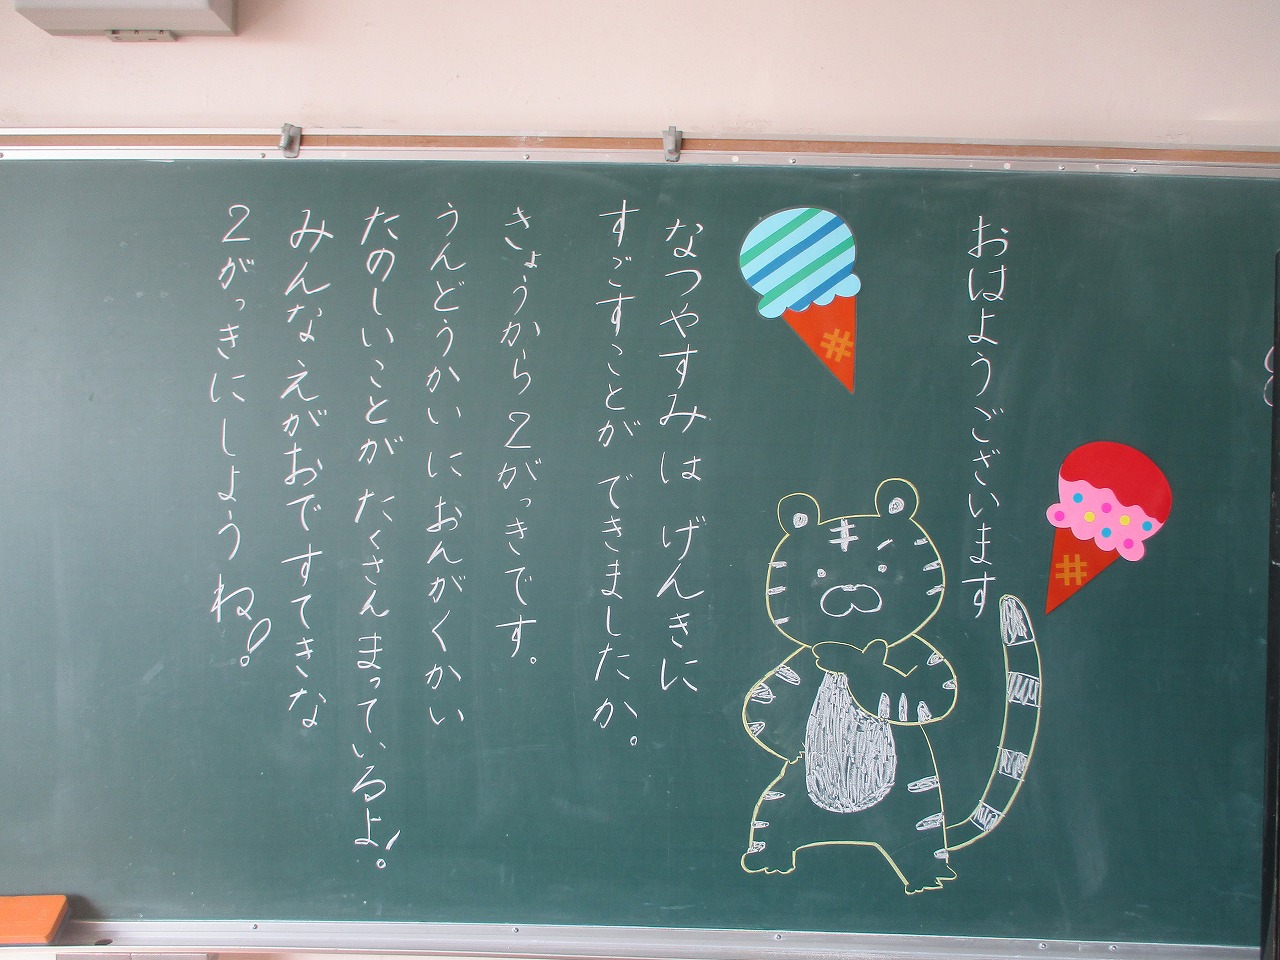 おはようございます
なつやすみは げんきに
すごすことが できましたか。
きょうから2がっきです。
うんどうかいに おんがくかい
たのしいことが たくさん まっているよ!
みんな えがおで すてきな
2がっきにしようね!